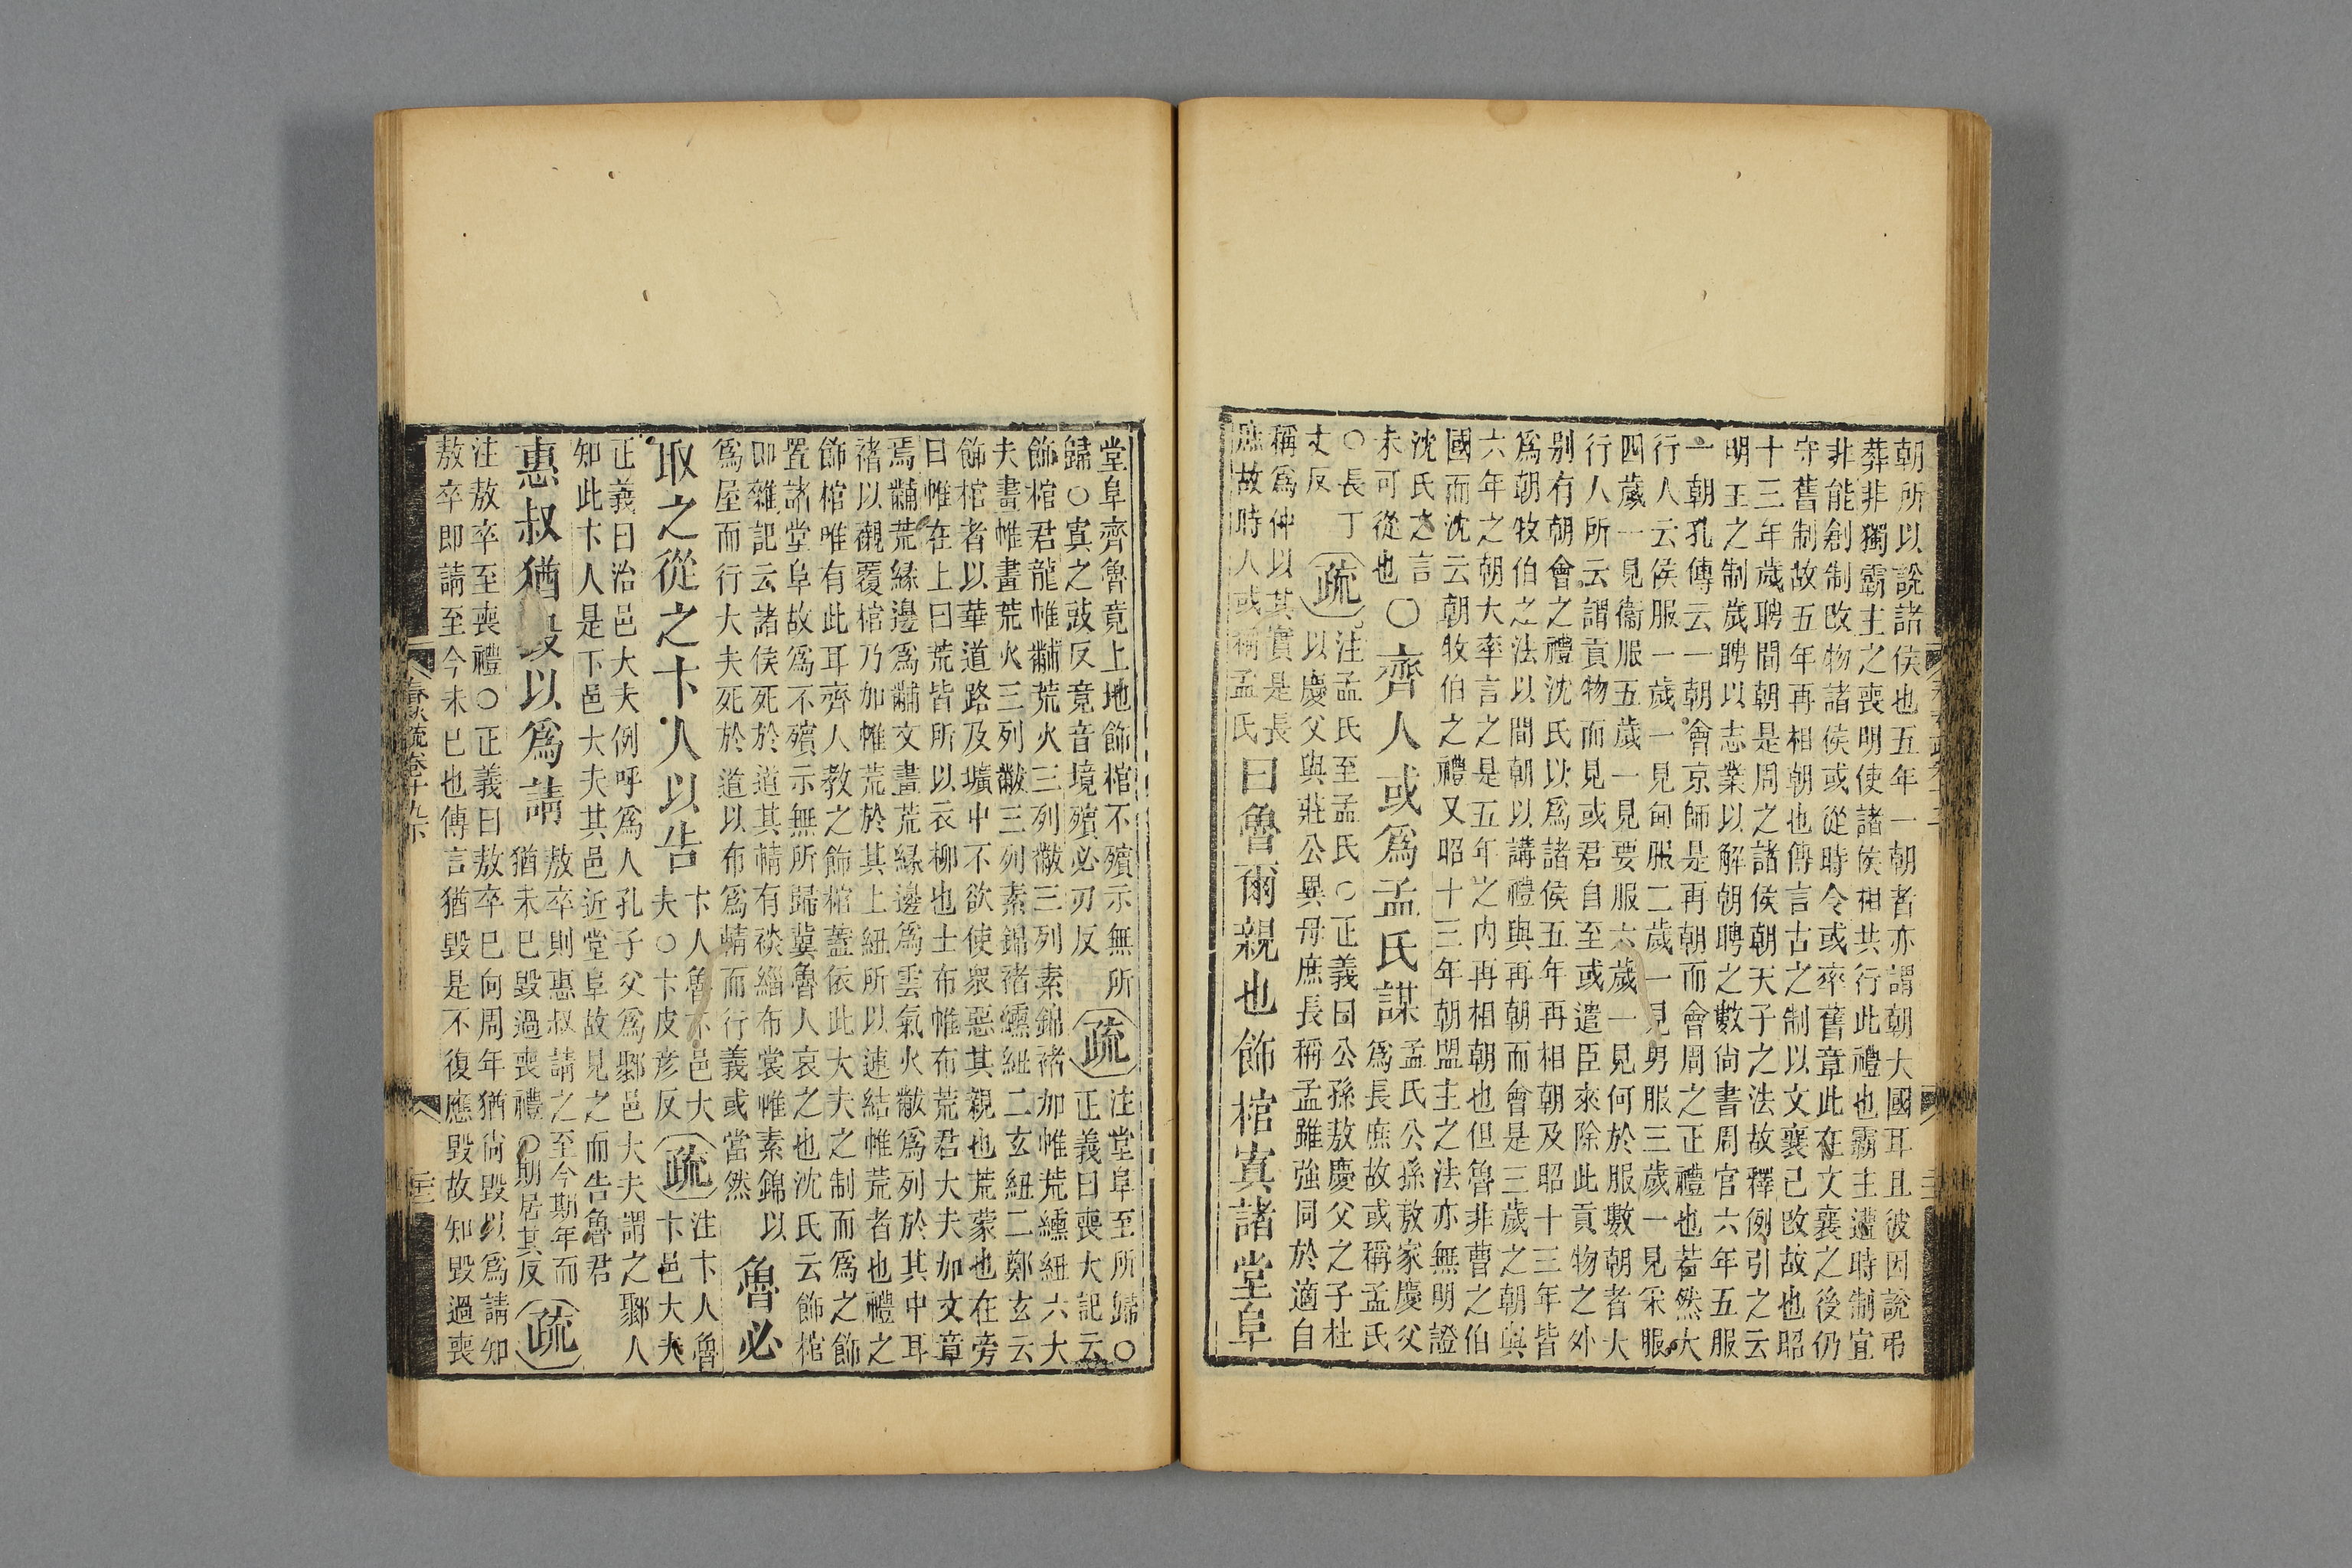 朝所以說諸侯也五年一朝者亦謂朝大國耳且彼因說弔
葬非獨霸主之喪明使諸侯相共行此禮也霸主遭時制宜
非能創制改物諸侯或從時令或率舊章此在文襄之後仍
守舊制故五年再相朝也傳言古之制以文襄已改故也昭
十三年歲聘間朝是周之諸侯朝天子之法故釋例引之云
明王之制歲聘以志業以解朝聘之數尚書周官六年五服
一朝孔傳云一朝會京師是再朝而會周之正禮也若然大
行人云侯服一歲一見甸服二歲一見男服三歲一見采服
四歲一見衞服五歲一見要服六歲一見何於服數朝者大
行人所云謂貢物而見或君自至或遣臣來除此貢物之外
别有朝會之禮沈氏以爲諸侯五年再相朝及昭十三年皆
爲朝牧伯之法以間朝以講禮與再朝而會是三歲之朝與
六年之朝大率言之是五年之内再相朝也但魯非曹之伯
國而沈云朝牧伯之禮又昭十三年朝盟主之法亦無明證
沈氏之言
未可從也
○齊人或爲孟氏謀
孟氏公孫敖家慶父
爲長庶故或稱孟氏
○長丁
丈反
疏
注孟氏至孟氏○正義曰公孫敖慶父之子杜
以慶父與莊公異母庶長稱孟雖強同於適自
稱爲仲以其實是長
庶故時人或稱孟氏
曰魯爾親也飾棺寘諸堂阜
堂阜齊魯竟上地飾棺不殯示無所
歸○寘之豉反竟音境殯必刃反
疏
注堂阜至所歸○
正義曰喪大記云
飾棺君龍帷黼荒火三列黻三列素錦褚加帷荒纁紐六大
夫畫帷畫荒火三列黻三列素錦褚纁紐二玄紐二鄭玄云
飾棺者以華道路及壙中不欲使衆惡其親也荒蒙也在旁
曰帷在上曰荒皆所以衣柳也士布帷布荒君大夫加文章
焉黼荒緣邊爲黼文畫荒緣邊爲雲氣火黻爲列於其中耳
褚以襯覆棺乃加帷荒於其上紐所以連結帷荒者也禮之
飾棺唯有此耳齊人教之飾棺蓋依此大夫之制而爲之飾
置諸堂阜故爲不殯示無所歸冀魯人哀之也沈氏云飾棺
即雜記云諸侯死於道其輤有裧緇布裳帷素錦以
爲屋而行大夫死於道以布爲輤而行義或當然
魯必
取之從之卞人以告
卞人魯卞邑大
夫○卞皮彥反
疏
注卞人魯
卞邑大夫
正義曰治邑大夫例呼爲人孔子父爲鄹邑大夫謂之鄹人
知此卞人是下邑大夫其邑近堂阜故見之而告魯君
惠叔猶毀以爲請
敖卒則惠叔請之至今期年而
猶未已毀過喪禮○期居其反
疏
注敖卒至喪禮○正義曰敖卒巳向周年猶尚毀以爲請知
敖卒即請至今未已也傳言猶毀是不復應毀故知毀過喪